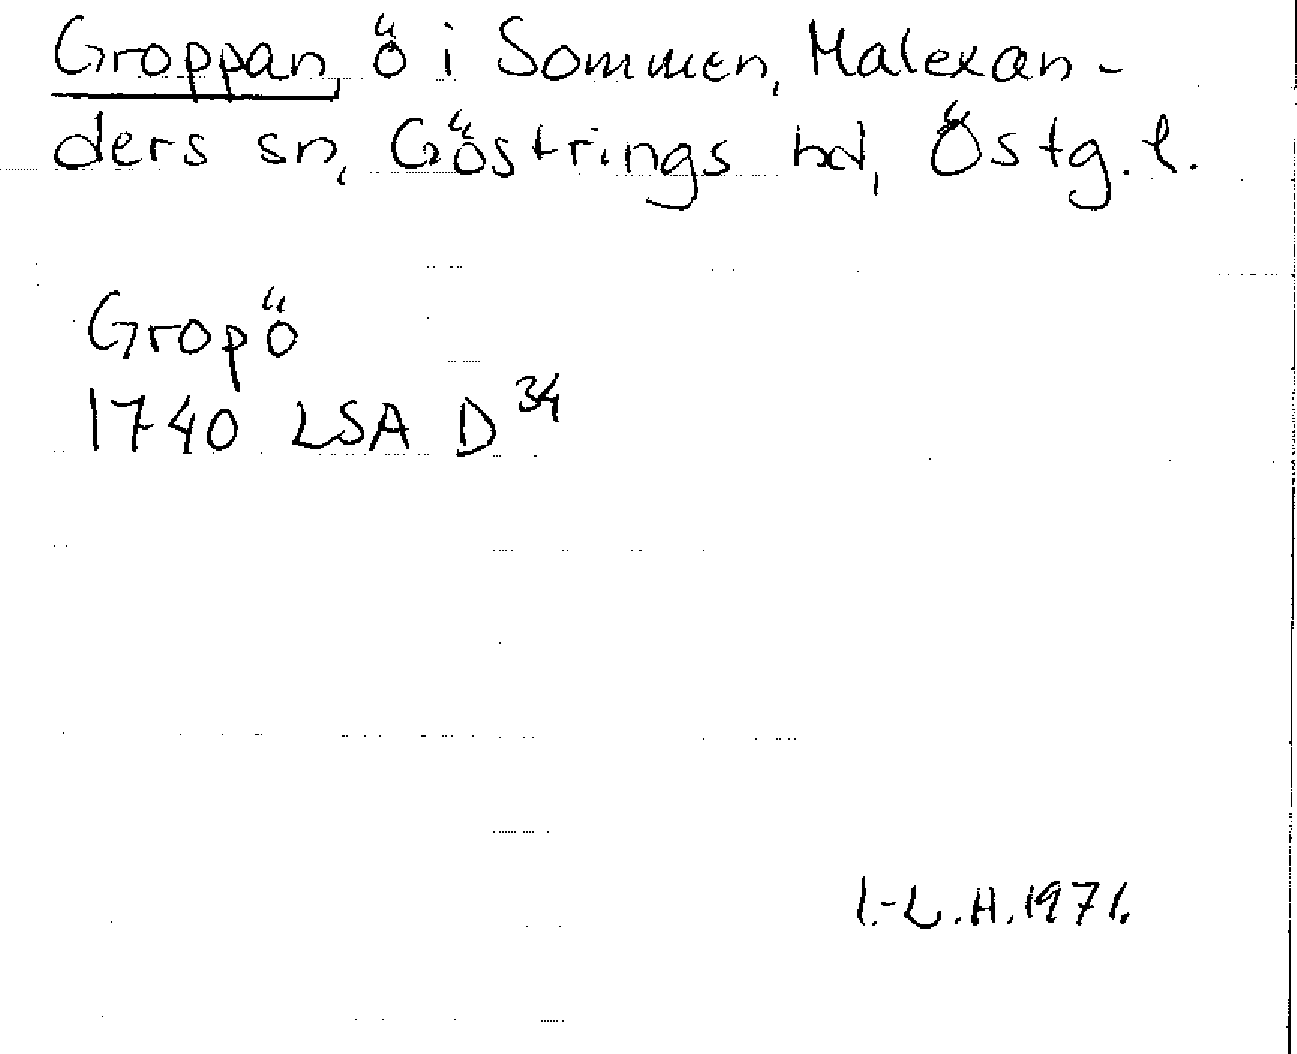 Groppan, ö i Sommen, Malexan-
ders sn, Göstrings hd, Östg. l.
Gropö
1740 LSA D³⁴
I.-L.H.1971.